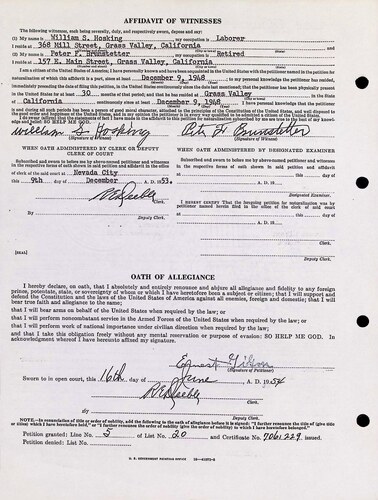 AFFIDAVIT OF WITNESSES
The following witnesses, each being severally, duly, and respectively sworn, depose and say:
(1) My name is William S. Hosking my occupation is Laborer
I reside at 368 Mill Street, Grass Valley, California
(2) My name is Peter F. Brunstetter my occupation is Retired
I reside at 157 E. Main Street, Grass Valley, California
I am a citizen of the United States of America; I have personally known and have been acquainted in the United States with the petitioner named in the petition for
naturalization of which this affidavit is a part, since at least December 9, 1948
immediately preceding the date of filing this petition, in the United States continuously since the date last mentioned; that the petitioner has been physically present
in the United States for at least 30 months of this period; and that he has resided at Grass Valley
California continuously since at least December 9, 1948 I have personal knowledge that the petitioner is
and during all such periods has been a person of good moral character, attached to the principles of the Constitution of the United States, and well disposed to
the good order and happiness of the United States, and in my opinion the petitioner is in every way qualified to be admitted a citizen of the United States.
I do swear (affirm) that the statements of fact I have made in this affidavit to this petition for naturalization subscribed by me are true to the best of my knowledge
and belief SO HELP ME GOD.
William S. Hosking Peter F. Brunstetter
(Signature of Witness) (Signature of Witness)
WHEN OATH ADMINISTERED BY CLERK OR DEPUTY CLERK OF COURT
Subscribed and sworn to before me by above-named petitioner and witnesses
in the respective forms of oath shown in said petition and affidavit in the office
of the clerk of said court at Nevada City
this 9th day of December A. D. 1953.
Clerk.
By
Deputy Clerk.
WHEN OATH ADMINISTERED BY DESIGNATED EXAMINER
Subscribed and sworn to before me by above-named petitioner and witnesses
in the respective forms of oath shown in said petition and affidavit
at
this day of A. D. 19
Designated Examiner.
I HEREBY CERTIFY that the foregoing petition for naturalization was by
petitioner named herein filed in the office of the clerk of said court
Clerk.
By
Deputy Clerk.
[SEAL]
OATH OF ALLEGIANCE
I hereby declare, on oath, that I absolutely and entirely renounce and abjure all allegiance and fidelity to any foreign
prince, potentate, state, or sovereignty of whom or which I have heretofore been a subject or citizen; that I will support and
defend the Constitution and the laws of the United States of America against all enemies, foreign and domestic; that I will
bear true faith and allegiance to the same;
that I will bear arms on behalf of the United States when required by the law; or
that I will perform noncombatant service in the Armed Forces of the United States when required by the law; or
that I will perform work of national importance under civilian direction when required by the law;
and that I take this obligation freely without any mental reservation or purpose of evasion: SO HELP ME GOD. In
acknowledgment whereof I have hereunto affixed my signature.
Ernest
(Signature of Petitioner)
Sworn to in open court, this 16th day of June A. D. 1954
Clerk.
By
Deputy Clerk.
NOTE.—In renunciation of title or order of nobility, add the following to the oath of allegiance before it is signed: "I further renounce the title of (give title
or titles) which I have heretofore held," or "I further renounce the order of nobility (give the order of nobility) to which I have heretofore belonged."
Petition granted: Line No. 5 of List No. 20 and Certificate No. 7061229 issued.
Petition denied: List No.
U. S. GOVERNMENT PRINTING OFFICE